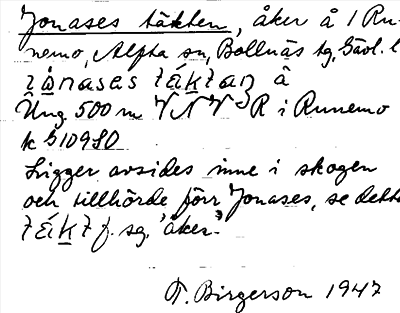 Jonases täkten, åker å 1 Ru-
nemo, Alfta sn, Bollnäs tg, Gävl. l
jo̊nasas täktan å
Ung. 500 m VNV R i Runemo
k
Ligger avsides inne i skogen
och tillhörde förr Jonases, se detta
täkt f. sg. 'åker.'
T. Birgerson 1947